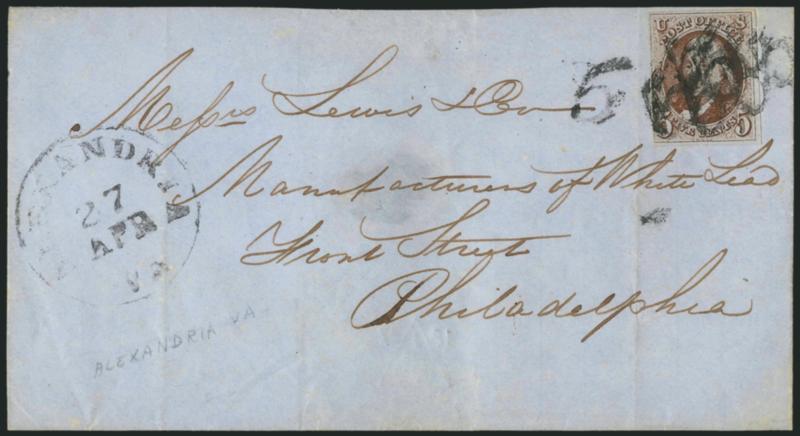 U S
POST OFFICE
FIVE CENTS
5
5
Messrs Lewis & Co
Manufacturers of White Lead
Front Street
Philadelphia
ALEXANDRIA
27
APR
Va
ALEXANDRIA VA